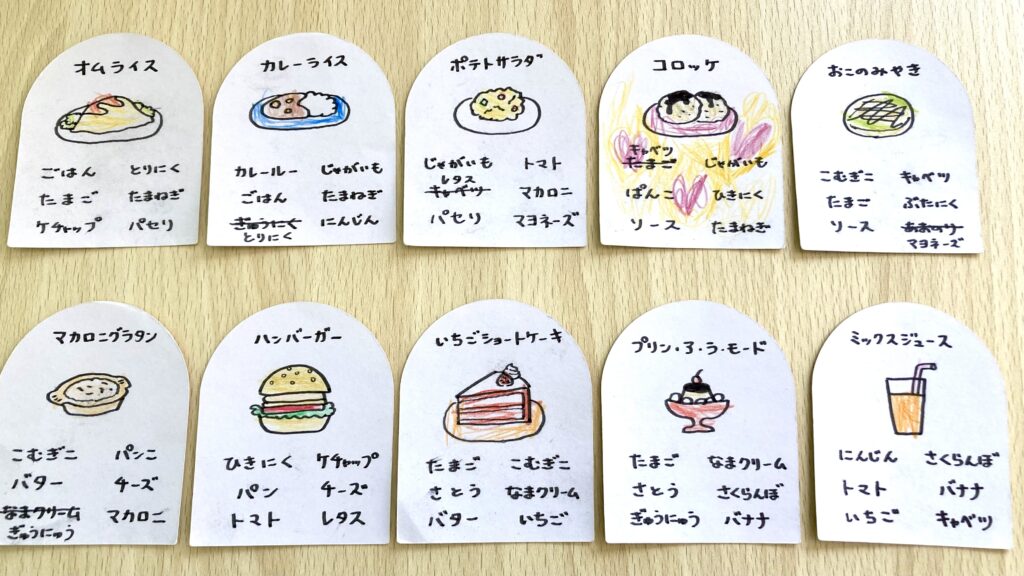 オムライス
ごはん とりにく
たまご たまねぎ
ケチャップ パセリ
カレーライス
カレールー じゃがいも
ごはん たまねぎ
ぎゅうにく にんじん
とりにく
ポテトサラダ
じゃがいも トマト
レタス
キャベツ マカロニ
パセリ マヨネーズ
コロッケ
キャベツ
たまご じゃがいも
ぱんこ ひきにく
ソース たまねぎ
おこのみやき
こむぎこ キャベツ
たまご ぶたにく
ソース あおのり
マヨネーズ
マカロニグラタン
こむぎこ パンこ
バター チーズ
なまクリーム マカロニ
ぎゅうにゅう
ハンバーガー
ひきにく ケチャップ
パン チーズ
トマト レタス
いちごショートケーキ
たまご こむぎこ
さとう なまクリーム
バター いちご
プリン・ア・ラ・モード
たまご なまクリーム
さとう さくらんぼ
ぎゅうにゅう バナナ
ミックスジュース
にんじん さくらんぼ
トマト バナナ
いちご キャベツ